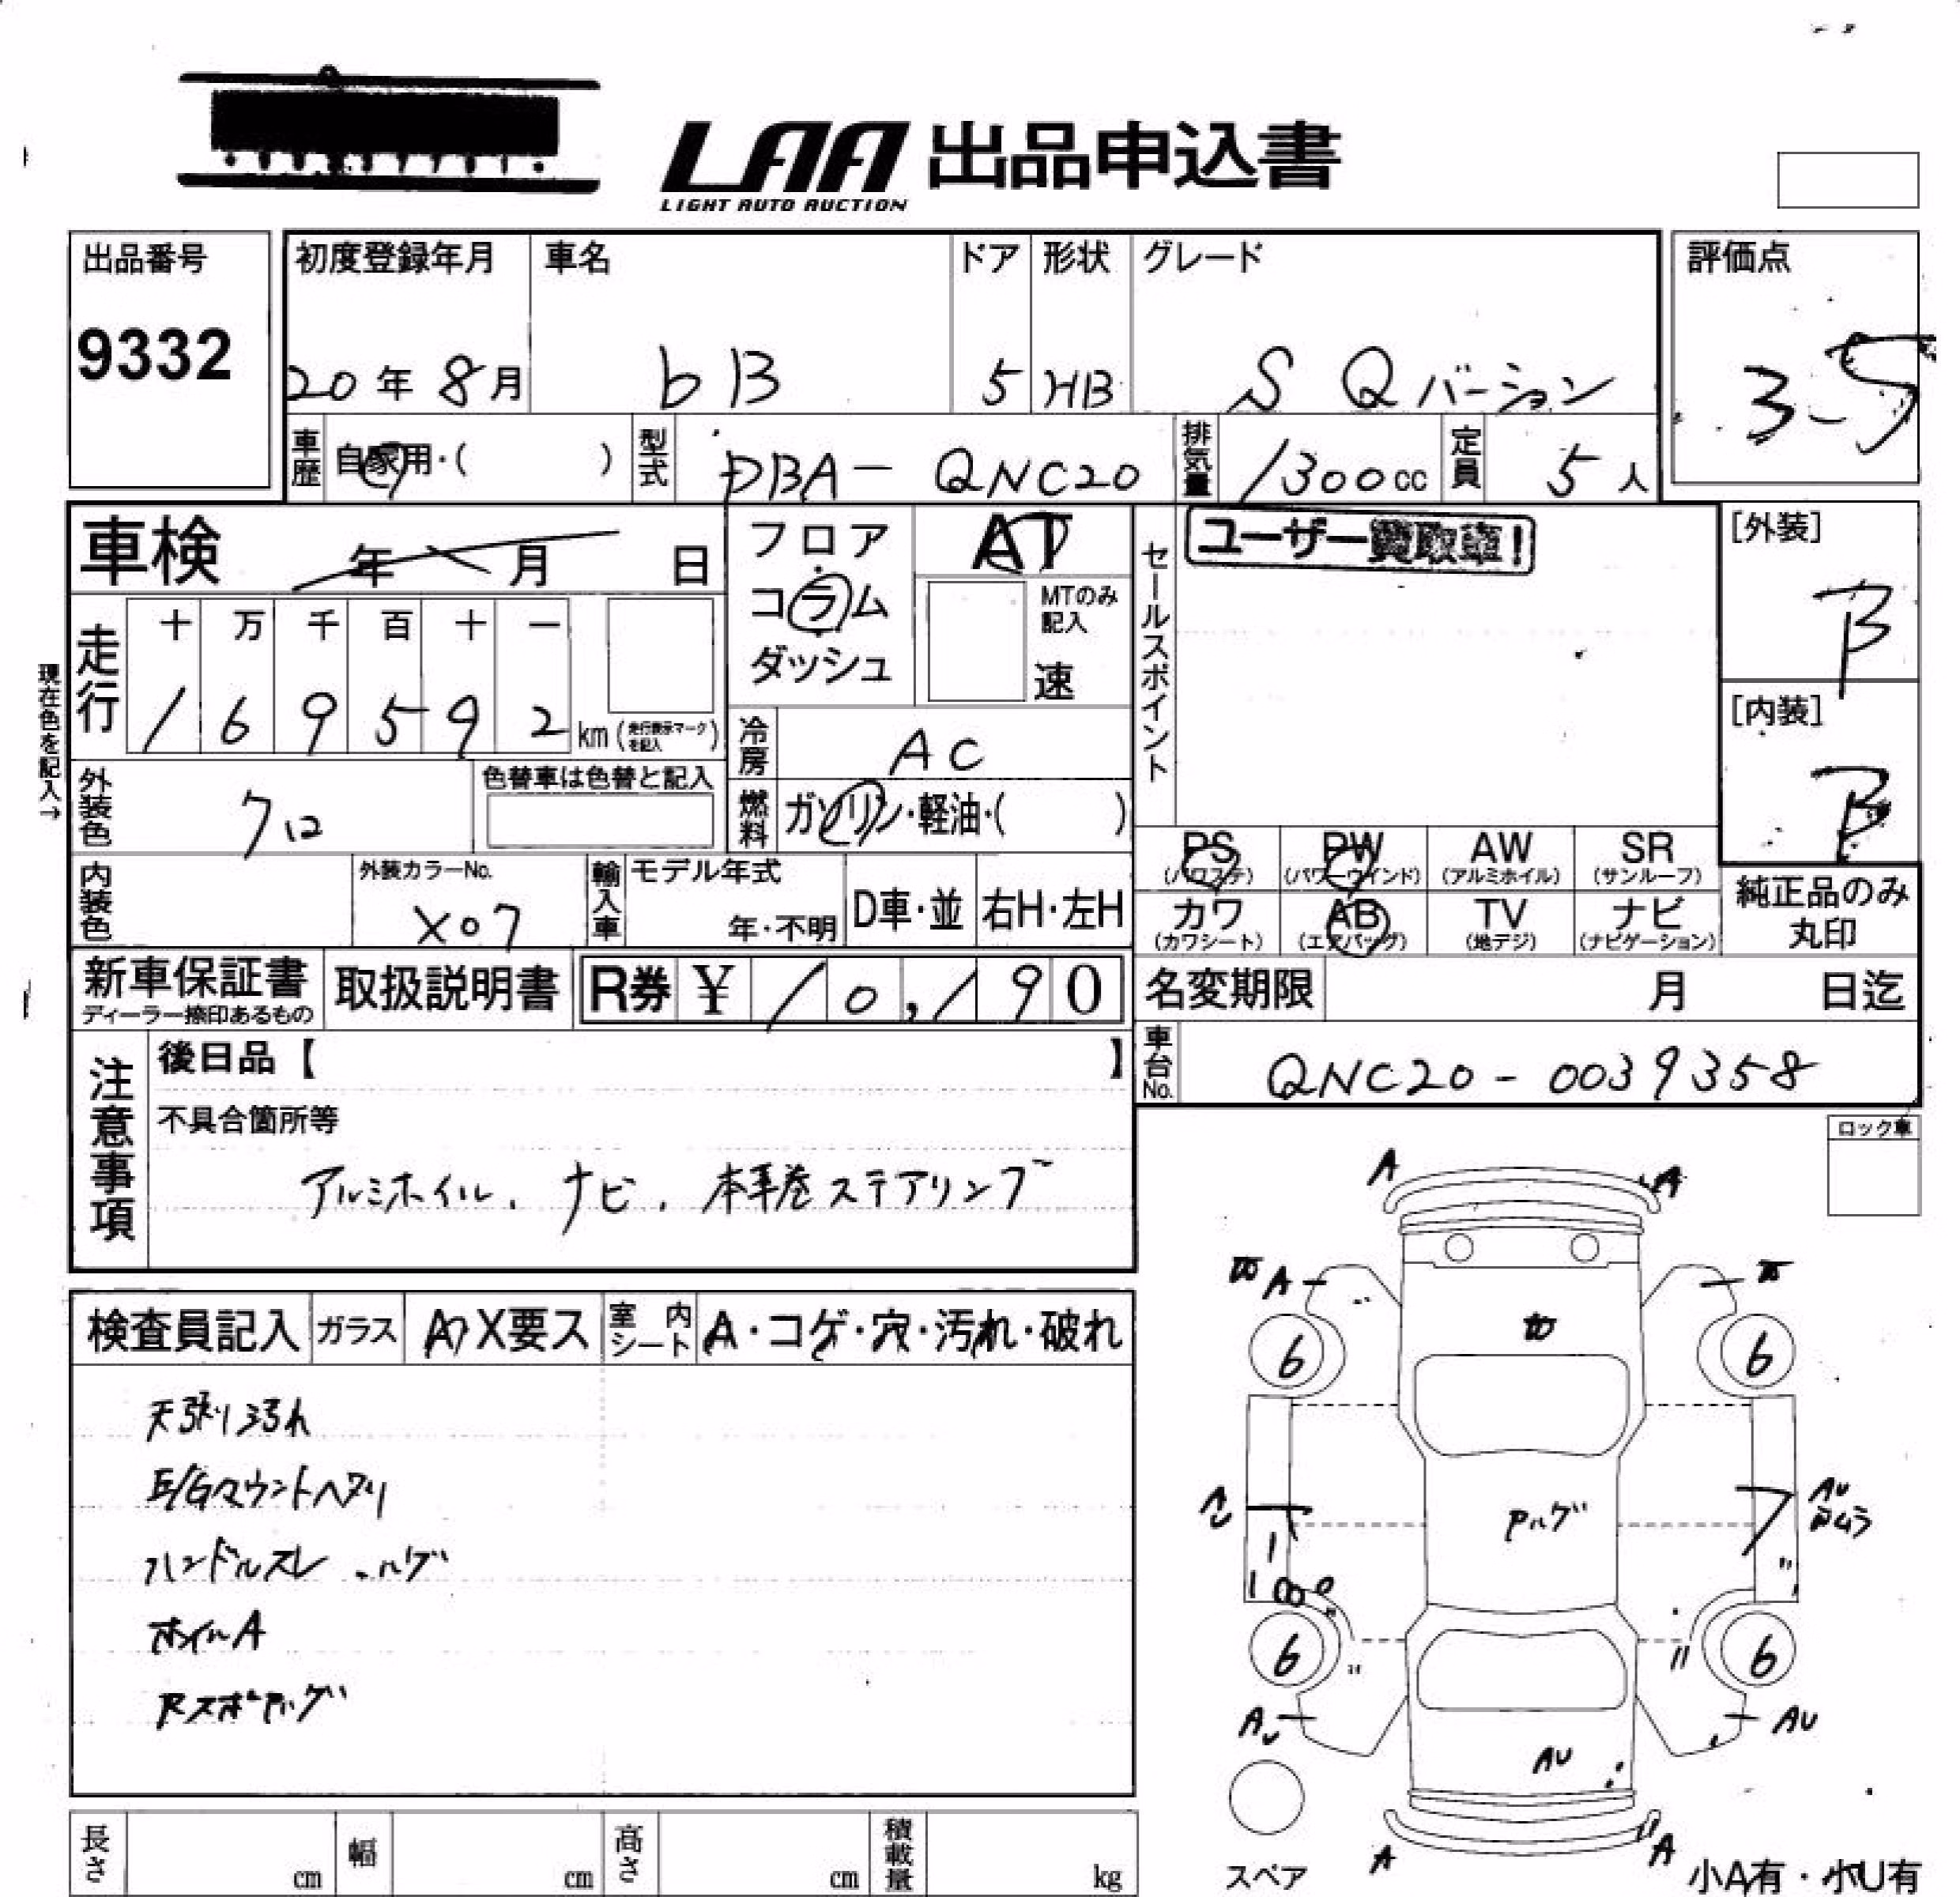 LAA 出品申込書
LIGHT AUTO AUCTION
出品番号
9332
初度登録年月 車名 ドア 形状 グレード
20年8月 bB 5 HB S Qバージョン
評価点
3.5
車歴 自家用・( ) 型式 DBA-QNC20 排気量 1300cc 定員 5人
車検 年 月 日
フロア
コラム
ダッシュ
AT
MTのみ
記入
速
セールスポイント
ユーザー買取車!
[外装]
B
[内装]
B
現在色を記入→
走行
十 万 千 百 十 一
1 6 9 5 9 2 km (走行表示マークを記入)
冷房 AC
燃料 ガソリン・軽油・( )
外装色 クロ
色替車は色替と記入
内装色
外装カラーNo.
X07
輸入車 モデル年式
年・不明
D車・並 右H・左H
PS PW AW SR
(パワステ) (パワーウインド) (アルミホイル) (サンルーフ)
カワ AB TV ナビ
(カワシート) (エアバッグ) (地デジ) (ナビゲーション)
純正品のみ
丸印
新車保証書
ディーラー捺印あるもの
取扱説明書 R券 ¥ 10,190
名変期限 月 日迄
車台No. QNC20-0039358
注意事項
後日品【 】
不具合箇所等
アルミホイル、ナビ、本革巻ステアリング
ロック車
検査員記入 ガラス A X要ス 室内シート A・コゲ・穴・汚れ・破れ
天張り汚れ
E/Gマウントヘタリ
ハンドルスレ・ハゲ
ホイルA
A A
A
6 6
Pハゲ
AU
6 6
AU AU
AU
A A
スペア
小A有・小U有
長さ cm 幅 cm 高さ cm 積載量 kg